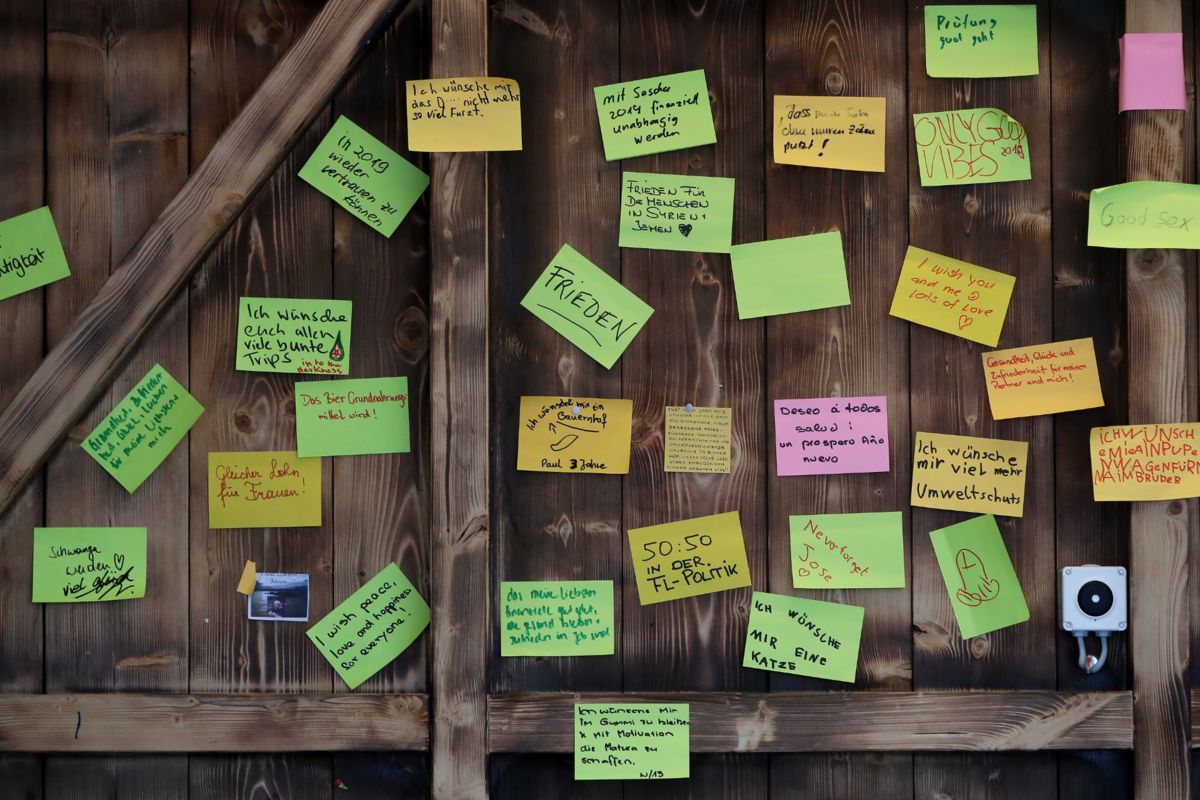 Prüfung
gut geht
Ich wünsche mir
das D.... nicht mehr
so viel Furzt.
mit Sascha
2019 finanziell
unabhängig
werden
dass mein Sohn
ohne murren Zähne
putzt!
ONLY GOOD
VIBES 2019
in 2019
wieder
vertrauen zu
können
FRIEDEN FÜR
DE MENSCHEN
IN SYRIEN +
JEMEN
Good sex
FRIEDEN
I wish you
and me
lots of love
Ich wünsche
euch allen
viele bunte
Trips
in to the
darkness
Gesundheit, Glück und
Zufriedenheit für meinen
Partner und mich!
für meine Liebsten +
mich
Das Bier Grundnahrungs-
mittel wird!
Ich wünschei mir ein
Bauernhof
Paul 3 Jahre
Deseo a todos
salud i
un prospero Año
nuevo
Ich wünsche
mir viel mehr
Umweltschuts
ICH WÜNSCH
EMIEAINPUPE
NWAGENFÜRN
MAIMBRUDER
Gleicher Lohn
für Frauen!
Schwanga
werden
viel
50:50
IN DER
FL-POLITIK
Never forget
Jose
I wish peace,
love and happiness
for everyone!
das meine Liebsten
finanziell gut geht,
ICH WÜNSCHE
MIR EINE
KATZE
Ich wünsche Mir
Im Gummi zu bleiben
x mit Motivation
die Matura zu
schaffen.
W/13